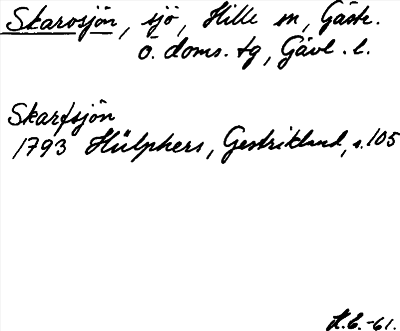 Skarvsjön, sjö, Hille sn, Gästr.
ö. doms. tg, Gävl. l.
Skarfsjön
1793 Hülphers, Gestrikland, s. 105
H.E. -61.